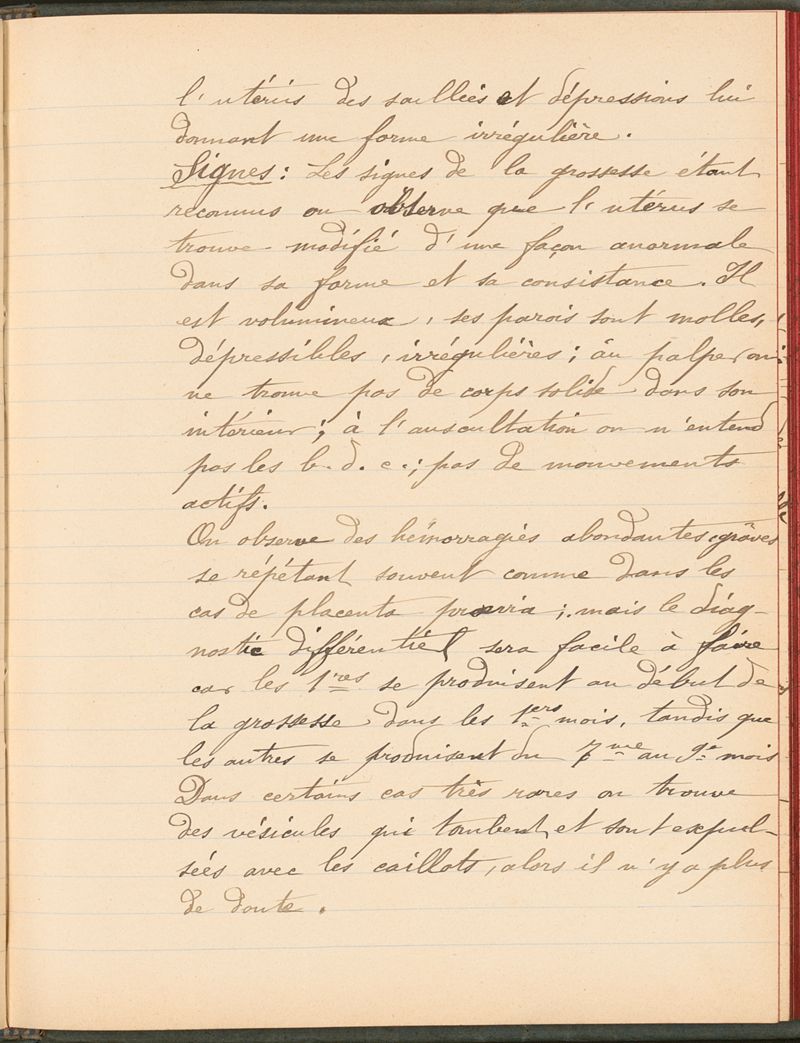 l'utérus des saillies et dépressions lui
donnant une forme irrégulière.
Signes : Les signes de la grossesse étant
reconnus on observe que l'utérus se
trouve modifié d'une façon anormale
dans sa forme et sa consistance. Il
est volumineux, ses parois sont molles,
dépressibles, irrégulières ; au palper on
ne trouve pas de corps solide dans son
intérieur ; à l'auscultation on n'entend
pas les b. d. c. ; pas de mouvements
actifs.
On observe des hémorragies abondantes, graves
se répétant souvent comme dans les
cas de placenta praevia ; mais le diag-
nostic différentiel sera facile à faire
car les 1res se produisent au début de
la grossesse dans les 1ers mois, tandis que
les autres se produisent du 7me au 9e mois
Dans certains cas très rares on trouve
des vésicules qui tombent et sont expul-
sées avec les caillots, alors il n'y a plus
de doute.